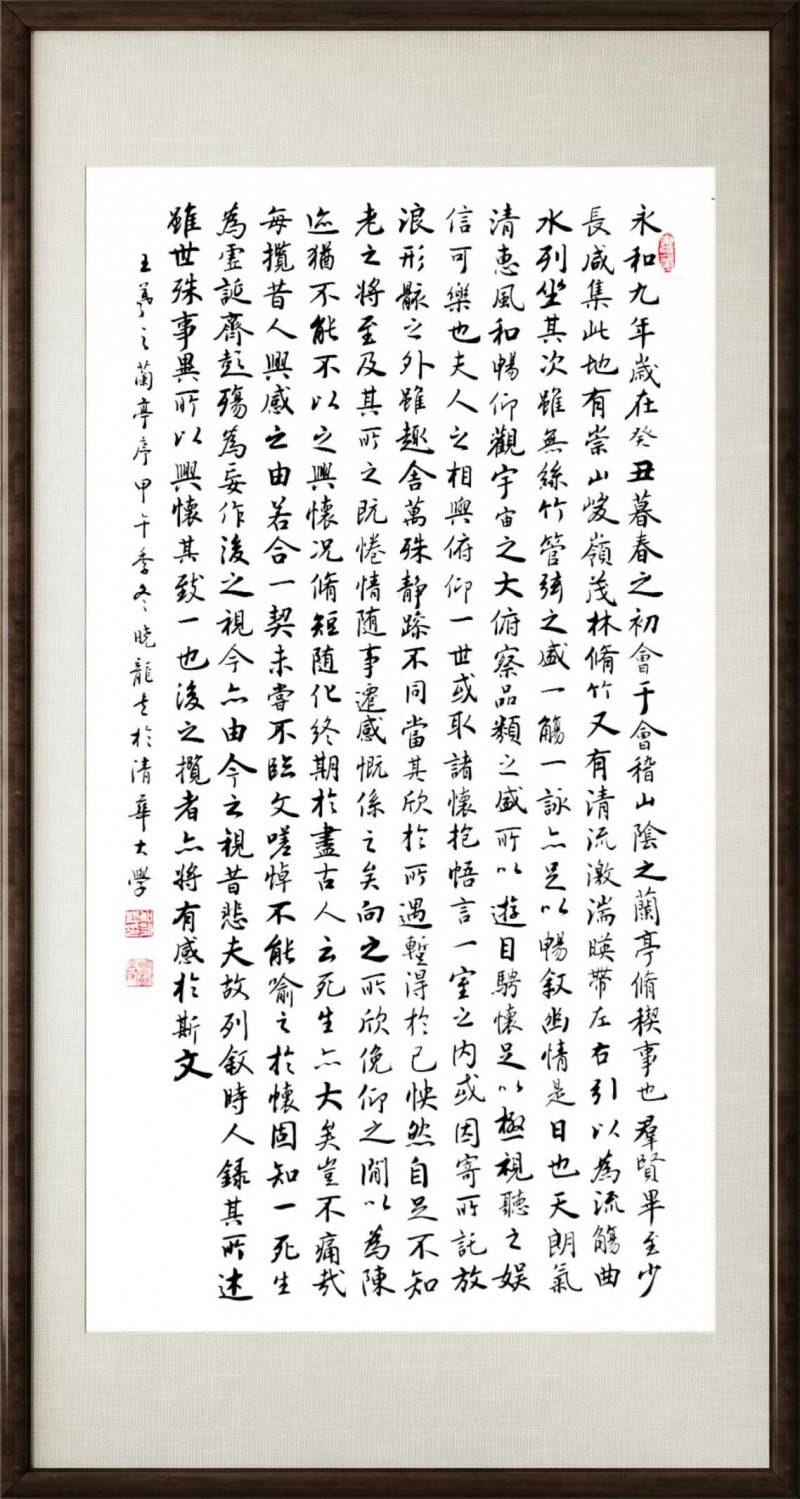 永和九年歲在癸丑暮春之初會于會稽山陰之蘭亭脩稧事也羣賢畢至少
長咸集此地有崇山峻嶺茂林脩竹又有清流激湍暎帶左右引以為流觴曲
水列坐其次雖無絲竹管弦之盛一觴一詠亦足以暢敘幽情是日也天朗氣
清惠風和暢仰觀宇宙之大俯察品類之盛所以遊目騁懷足以極視聽之娛
信可樂也夫人之相與俯仰一世或取諸懷抱悟言一室之内或因寄所託放
浪形骸之外雖趣舍萬殊静躁不同當其欣於所遇蹔得於己怏然自足不知
老之將至及其所之既惓情随事遷感慨係之矣向之所欣俛仰之閒以為陳
迹猶不能不以之興懷况脩短随化終期於盡古人云死生亦大矣豈不痛哉
每攬昔人興感之由若合一契未嘗不臨文嗟悼不能喻之於懷固知一死生
為虛誕齊彭殤為妄作後之視今亦由今之視昔悲夫故列敘時人録其所述
雖世殊事異所以興懷其致一也後之攬者亦將有感於斯文
王羲之蘭亭序甲午季冬晓龍书於清華大學